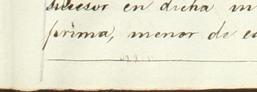 sucesor en dicha
prima, menor de